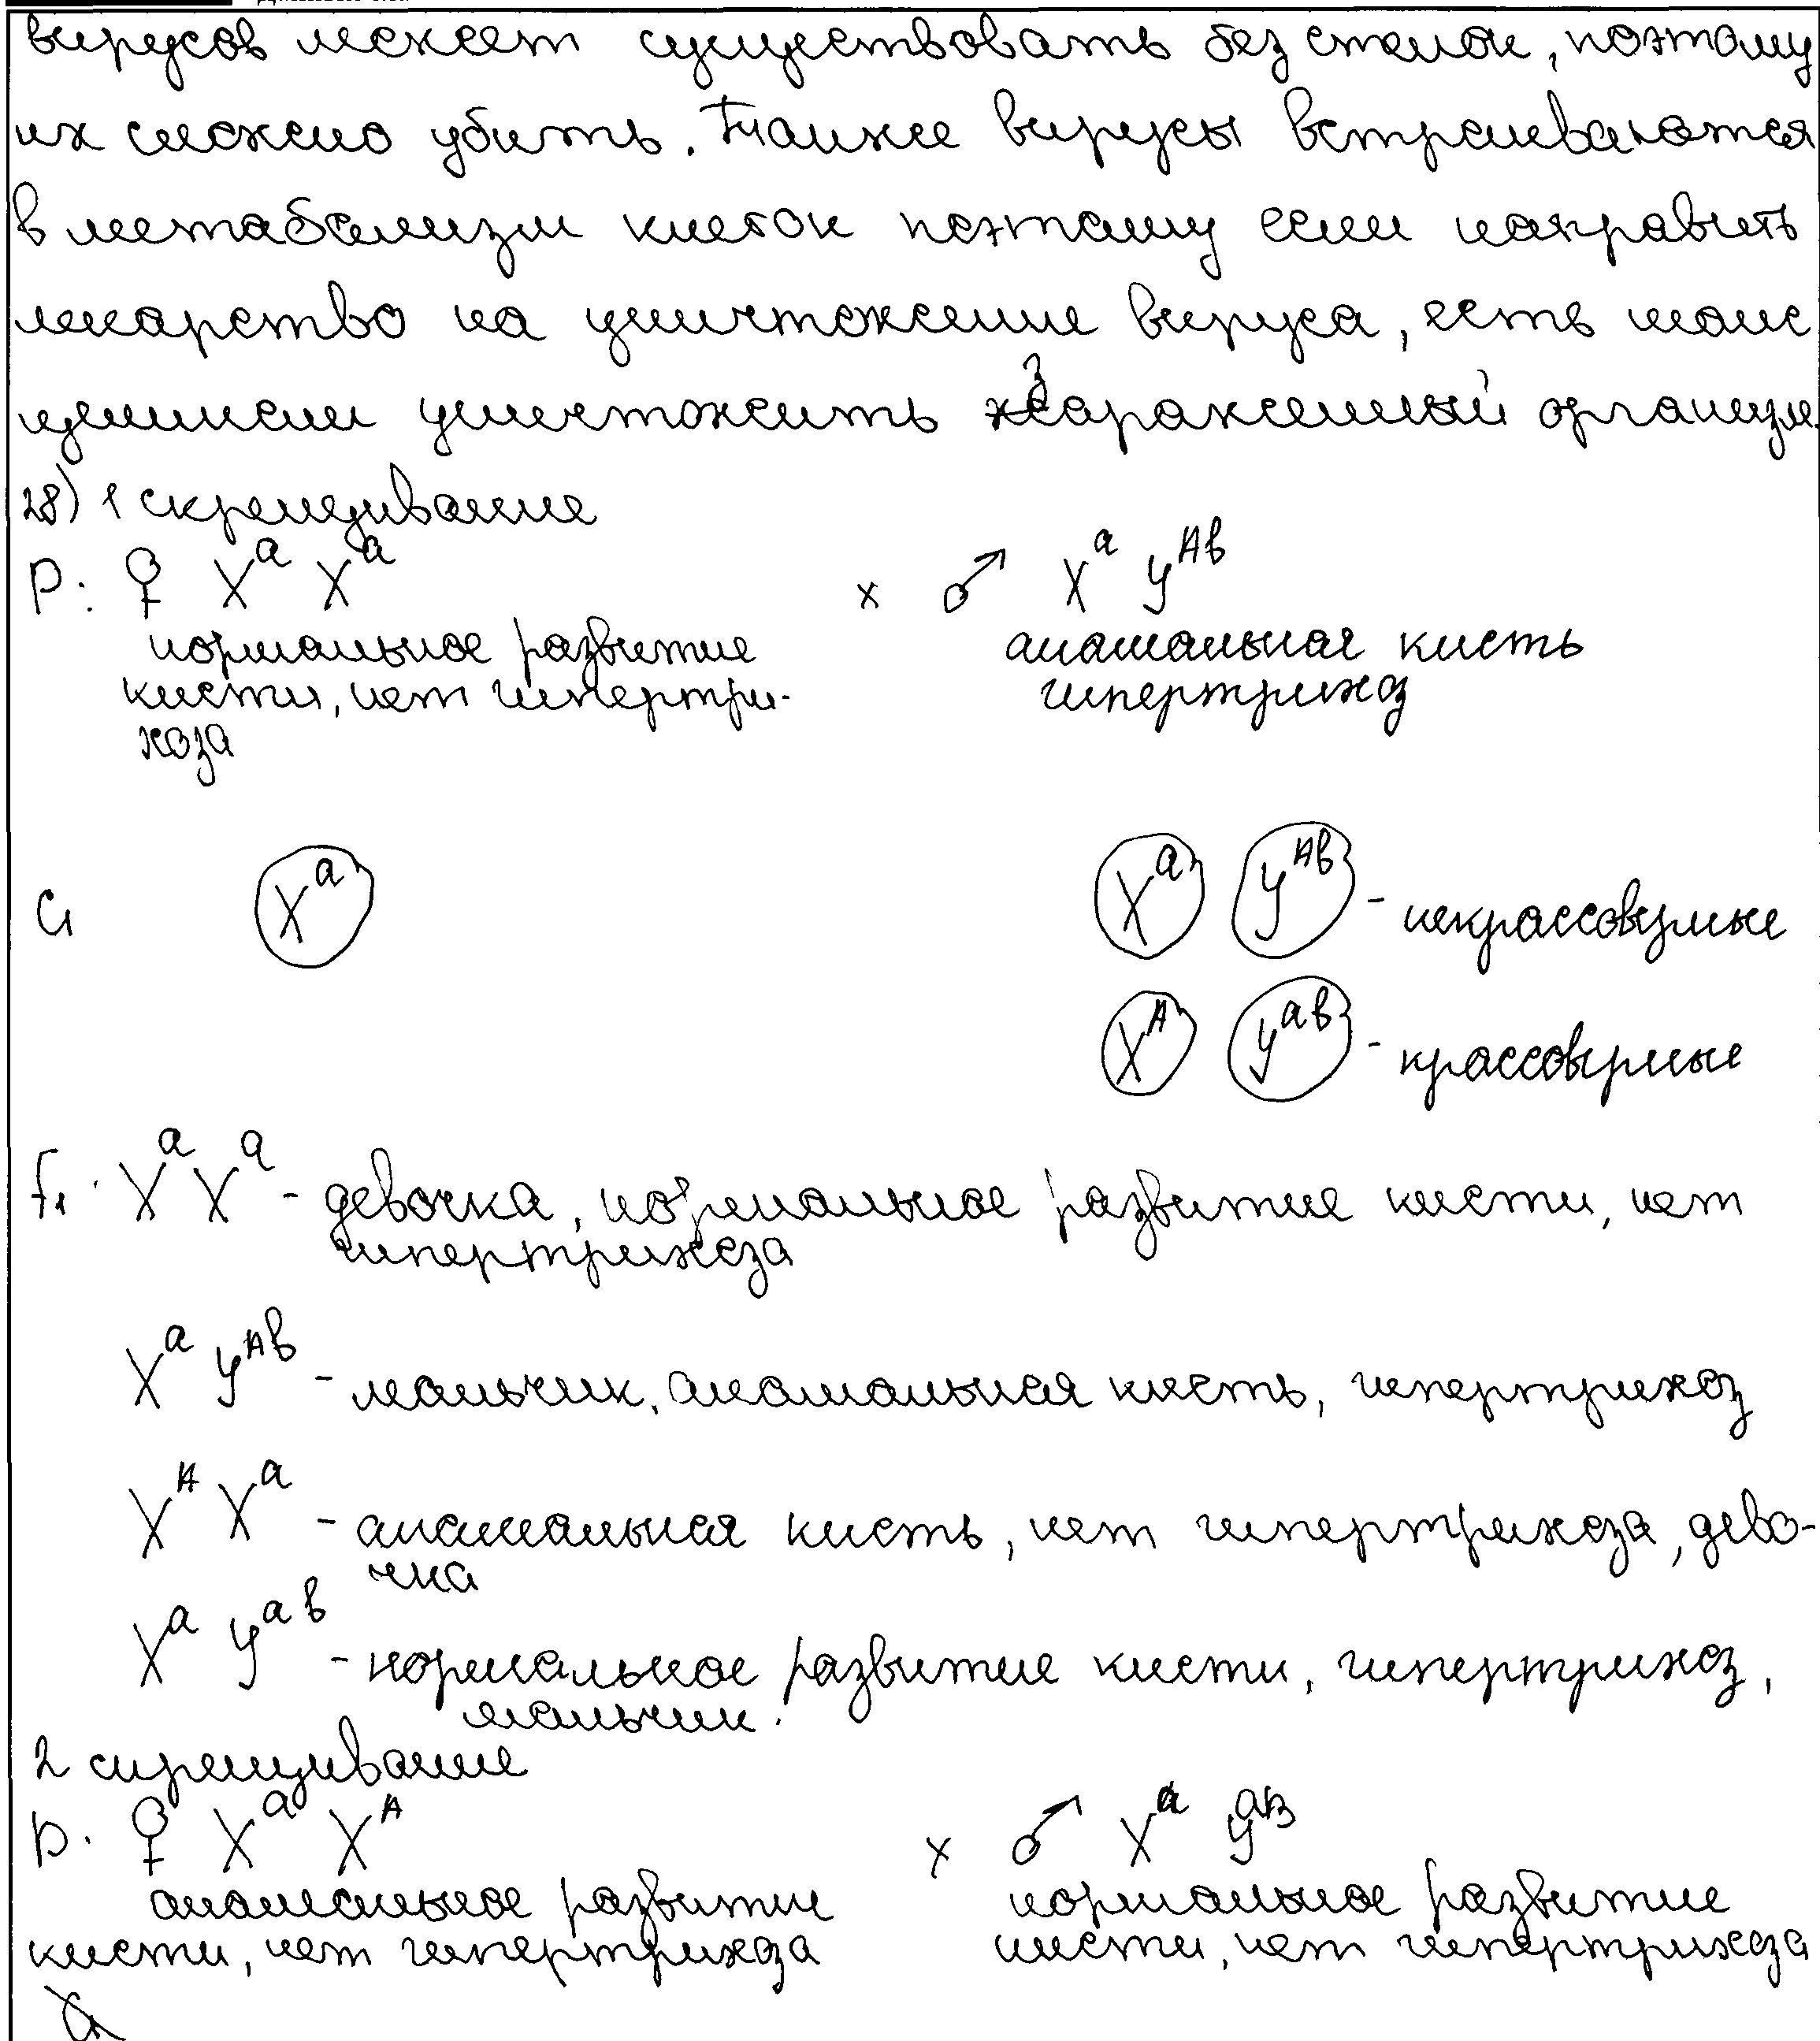 вирусов может существовать без стенок, поэтому
их сложно убить. Также вирусы встраиваются
в метаболизм клеток поэтому если направить
лекарство на уничтожение вируса, есть шанс
целиком уничтожить зараженный организм.
28) 1 скрещивание
P: ♀ Xᵃ Xᵃ x ♂ Xᵃ Yᴬᵇ
нормальное развитие аномальная кисть
кисти, нет гипертри- гипертрихоз
хоза
G Xᵃ Xᵃ Yᴬᵇ - некроссоверные
Xᴬ Yᵃᵇ - кроссоверные
F₁: Xᵃ Xᵃ - девочка, нормальное развитие кисти, нет
гипертрихоза
Xᵃ Yᴬᵇ - мальчик, аномальная кисть, гипертрихоз
Xᴬ Xᵃ - аномальная кисть, нет гипертрихоза, дево-
чка
Xᵃ Yᵃᵇ - нормальное развитие кисти, гипертрихоз,
мальчик.
2 скрещивание
P: ♀ Xᵃ Xᴬ x ♂ Xᵃ Yᵃᴮ
аномальное развитие нормальное развитие
кисти, нет гипертрихоза кисти, нет гипертрихоза